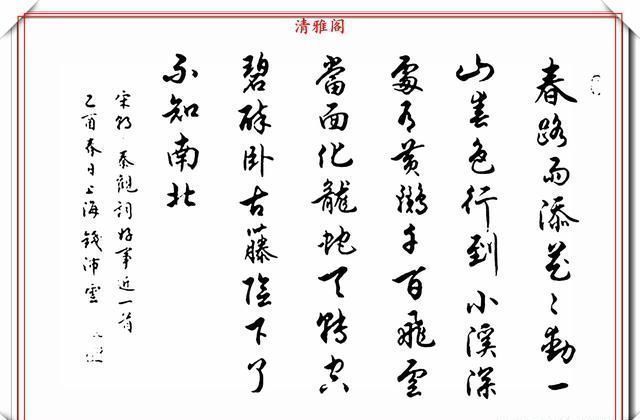 清雅阁
春路雨添花〻動一
山春色行到小溪深
處有黄鸝千百飛雲
當面化龍蛇夭轉空
碧醉卧古藤陰下了
不知南北
宋朝·秦觀詞好事近一首
乙酉春日上海錢沛雲